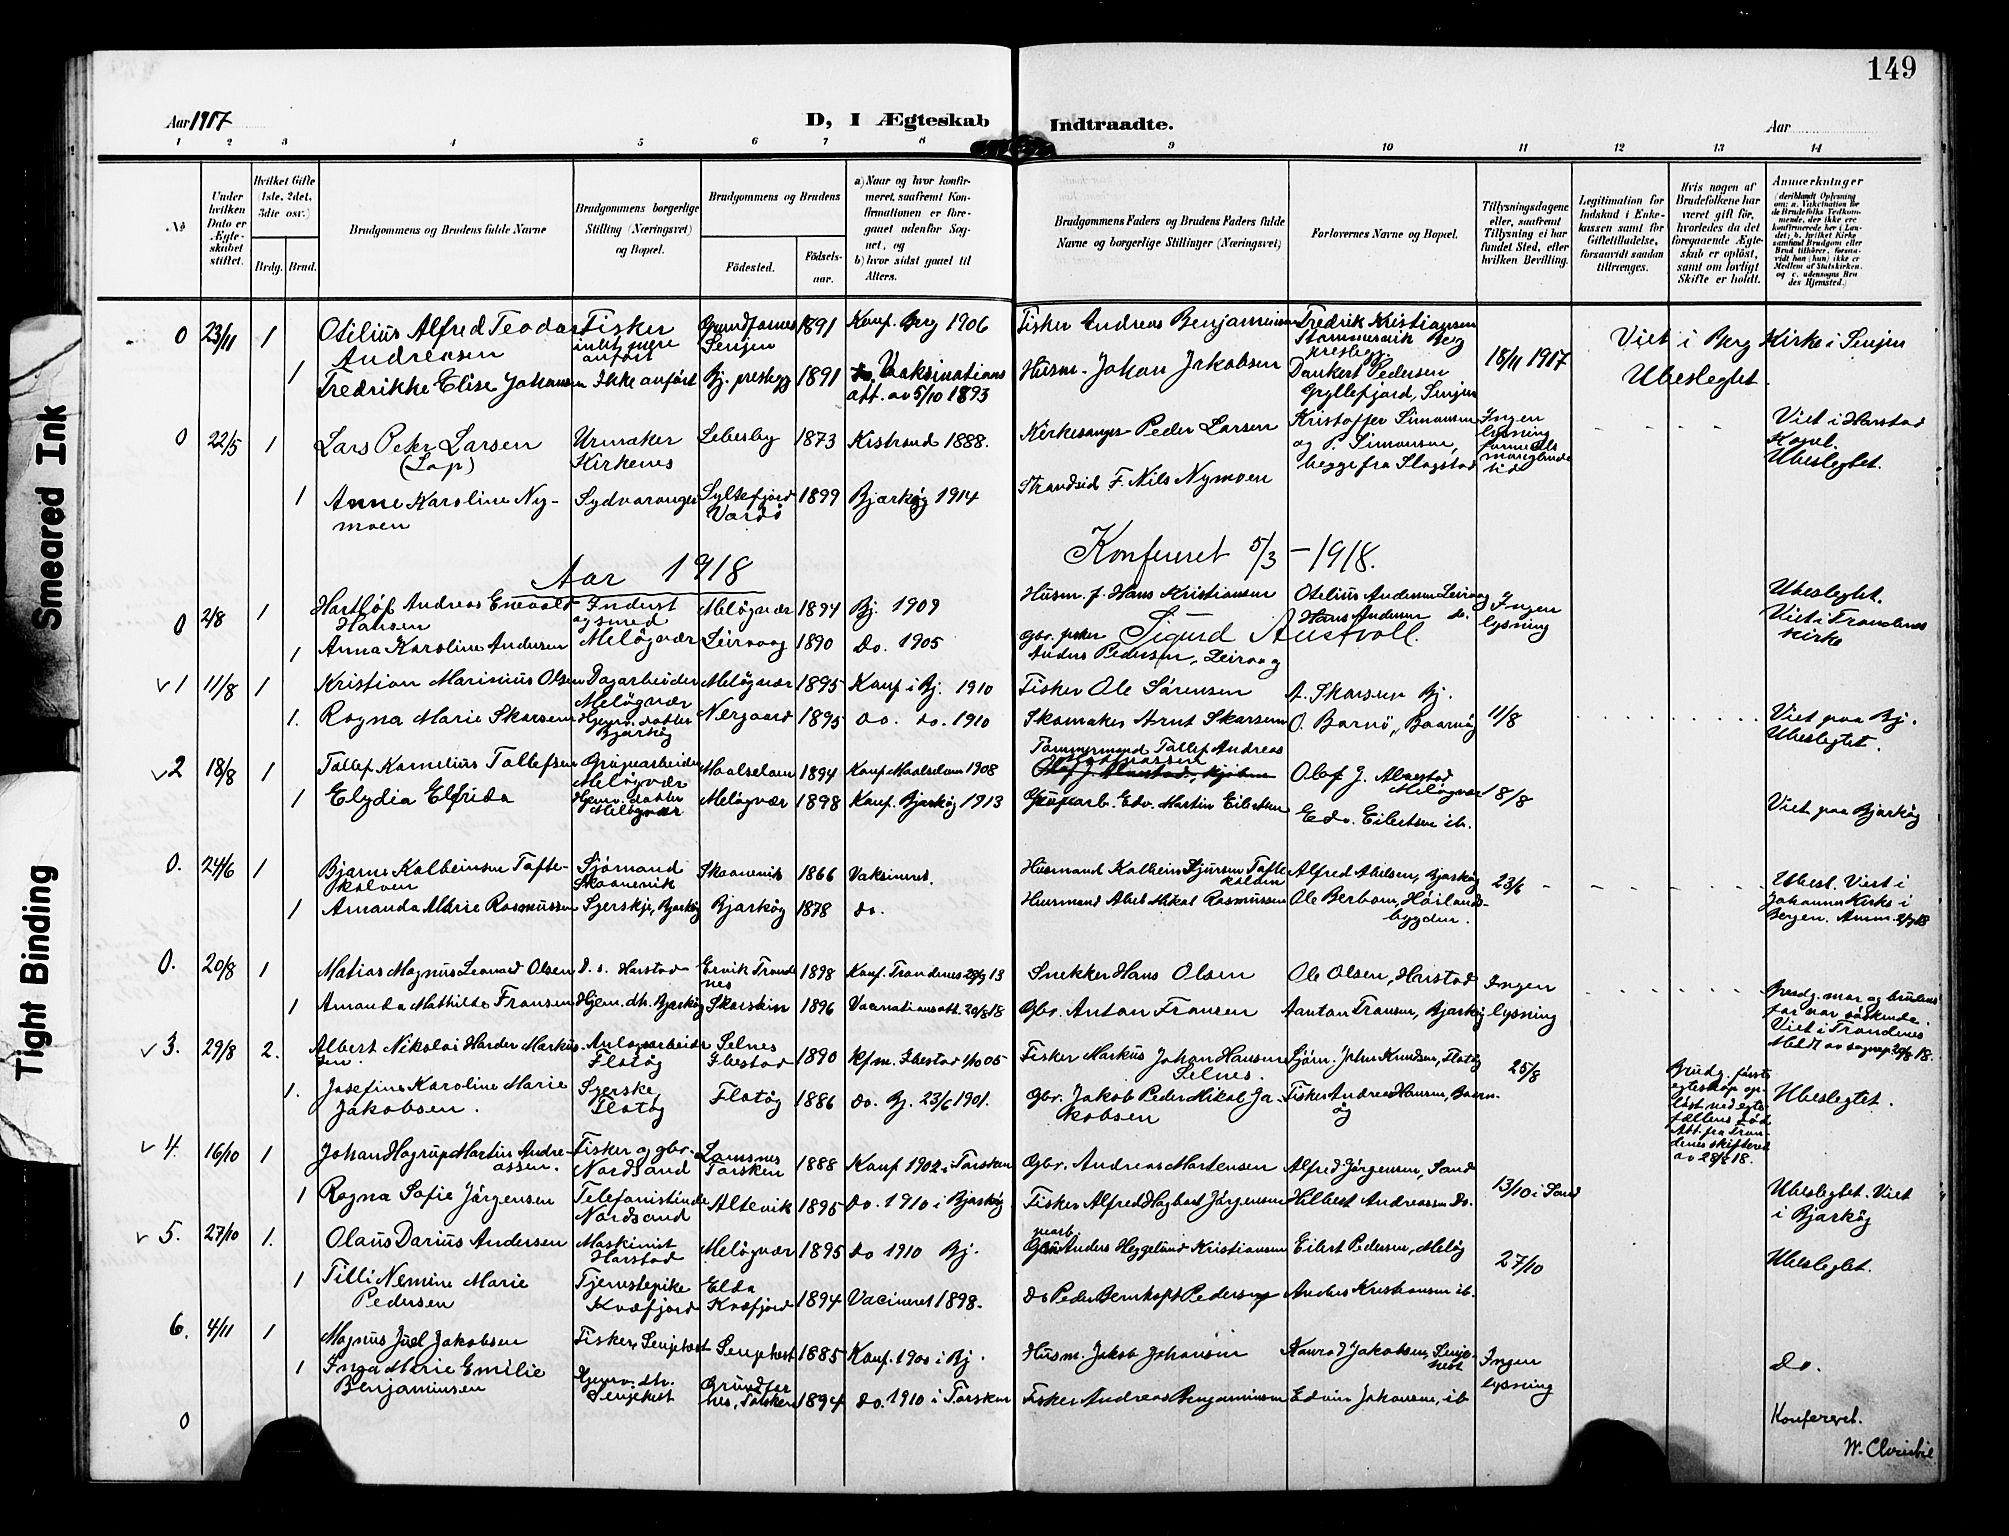 149
Aar 1917
D, I Ægteskab Indtraadte.
Aar
1 2 3 4 5 6 7 8 9 10 11 12 13 14
No
Under hvilken Dato er Ægteskabet stiftet.
Hvilket Gifte (1ste, 2det, 3die osv.)
Brdg. Brud.
Brudgommens og Brudens fulde Navne
Brudgommens borgerlige Stilling (Næringsvei) og Bopæl.
Brudgommens og Brudens
Födested.
Födselsaar.
a) Naar og hvor konfirmeret, saafremt Konfirmationen er foregaaet udenfor Sognet, og
b) hvor sidst gaaet til Alters.
Brudgommens Faders og Brudens Faders fulde Navne og borgerlige Stillinger (Næringsvei)
Forlovernes Navne og Bopæl.
Tillysningsdagene eller, saafremt Tillysning ei har fundet Sted, efter hvilken Bevilling.
Legitimation for Indskud i Enkekassen samt for Giftetilladelse, forsaavidt saadan tiltrænges.
Hvis nogen af Brudefolkene har været gift för, hvorledes da det foregaaende Ægteskab er oplöst, samt om lovligt Skifte er holdt.
Anmærkninger
0 23/11 1 Otilius Alfred Teodor Andreasen Fisker intet mere anfört Grundfarnes Senjen 1891 Konf. Berg 1906 Fisker Andreas Benjaminsen Fredrik Kristiansen Berg
18/11 1917 Viet i Berg Kirke i Senjen
1 Fredrikke Elise Johansen Ikke anfört Bj. prestegj 1891 Vaksinations att. av 5/10 1893 Husm. Johan Jakobsen Dankert Pedersen Gryllefjord, Senjen Ubeslegtet.
0 22/5 1 Lars Peter Larsen (Lap) Urmaker Kirkenes Lebesby 1873 Kistrand 1888. Kirkesanger Peder Larsen Kristoffer Simonsen og P. Simonsen, begge fra Slagstad Ingen lysning formedels manglende tid Viet i Harstad Kapel. Ubeslegtet.
1 Anne Karoline Nymoen Sydvaranger Syltefjord Vardö 1899 Bjarköy 1914 Strandsid. F. Nils Nymoen
Aar 1918
Konfereret 5/3 - 1918.
Sigurd Austvoll.
0 2/8 1 Hartlöf Andreas Enevold Hansen Inderst og smed Melöyvær Melöyvær 1894 Bj. 1909 Husm. f. Hans Kristiansen Otelius Andersen Leirvaag Hans Andersen do. Ingen lysning Ubeslegtet. Viet i Trondenes kirke
1 Anna Karoline Andersen Leirvaag 1890 Do. 1905 Gbr. fisker Anders Pedersen, Leirvaag
v 1 11/8 1 Kristian Marinius Olsen Dagarbeider Melöyvær Melöyvær 1895 Konf i Bj. 1910 Fisker Ole Sörensen A. Skarsen Bj.
1. Ragna Marie Skarsen Hjemv. datter Bjarköy Nergaard 1895 do. do. 1910 Skomaker Arnt Skarsen O. Barnö, Baarnöy 11/8 Viet paa Bj. Ubeslegtet.
v 2 18/8 1 Tollef Kornelius Tollefsen Grubearbeider Melöyvær Maalselven 1894 Konf Maalselven 1908 Tömmermand Tollef Andreas Olaf J. Alnestad Melöyvær 18/8
1 Elydia Elfrida Hjemv. datter Melöyvær Melöyvær 1898 Konf. Bjarköy 1913 Grubearb. Edv. Martin Eilertsen Edv. Eilertsen ib. Viet paa Bjarköy
0. 24/6 1 Bjarne Kolbeinsen Tofteskolven Sjömand Skaanevik Skaanevik 1866 Vaksineret. Husmand Kolbein Sjursen Alfred Abelsen, Bjarköy 23/6 Ubesl. Viet i Johannes Kirke i Bergen.
1 Amanda Marie Rasmussen Syerske, Bjarköy Bjarköy 1878 do. Husmand Abel Mikal Rasmussen Ole Berbom, Höilandsbygden.
0. 20/8 1 Matias Magnus Leonard Olsen D. s. Harstad Ervik Trondenes 1898 Konf. Trondenes 13 Snekker Hans Olsen Ole Olsen, Harstad Ingen lysning
1 Amanda Mathilde Fransen Hjem. dtr. Bjarköy Skarstein 1896 Vacinationsatt. 20/8 18 Gbr. Anton Fransen Aanton Fransen, Bjarköy Brudg. mor og brudens far var söskende. Viet i Trondenes
v 3. 29/8 2. Albert Nikolai Harder Markussen. Anlægsarbeider Flatöy Selnes Ibestad 1890 Kfm. Ibestad 1/10 05 Fisker Markus Johan Hansen Selnes. Sjöm. Johs Knudsen, Flatöy 25/8 Brudg. förste egteskap oplöst ved egtefællens död Att. fra Trondenes skifteret av 28/8 18. Ubeslegtet.
1. Josefine Karoline Marie Jakobsen. Syerske, Flatöy Flatöy 1886 do. Bj. 23/6 1901. Gbr. Jakob Peder Mikal Jakobsen Fisker Andreas Hansen, Baarnöy
v 4. 16/10 1 Johan Hagrup Martin Andreassen. Fisker og gbr. Nordsand Lamsnes Torsken 1888 Konf 1902 i Torsken Gbr. Andreas Mortensen Alfred Jörgensen, Sand 13/10 i Sand
1 Ragna Sofie Jörgensen Telefonistinde Nordsand Altevik 1895 Do. 1910 i Bjarköy Fisker Alfred Hagbart Jörgensen Hilbert Andreassen Do. Ubeslegtet. Viet i Bjarköy
v 5. 27/10 1. Olaus Darius Andersen Maskinist Harstad Melöyvær 1895 do 1910 Bj. Anders Heggelund Kristiansen Eilert Pedersen, Melöy 27/10 Ubeslegtet.
1 Tilli Nemine Marie Pedersen Tjenestepike Kvæfjord Elde Kvæfjord 1894 Vacineret 1898. do Peder Bernhoft Pedersen Anders Kristiansen ib.
6. 4/11 1 Magnus Juel Jakobsen Fisker, Senjehest Senjehest 1885 Konf. 1900 i Bj. Husm. Jakob Johansen Konrad Jakobsen, Senjehest Ingen lysning Do.
1 Inga Marie Emilie Benjaminsen Hjemv. dtr. Senjehest Grundfarnes, Torsken 1894 do. 1910 i Torsken Fisker Andreas Benjaminsen Edvin Johansen, ib
0
Konfereret.
W. Christie
Smeared Ink
Tight Binding